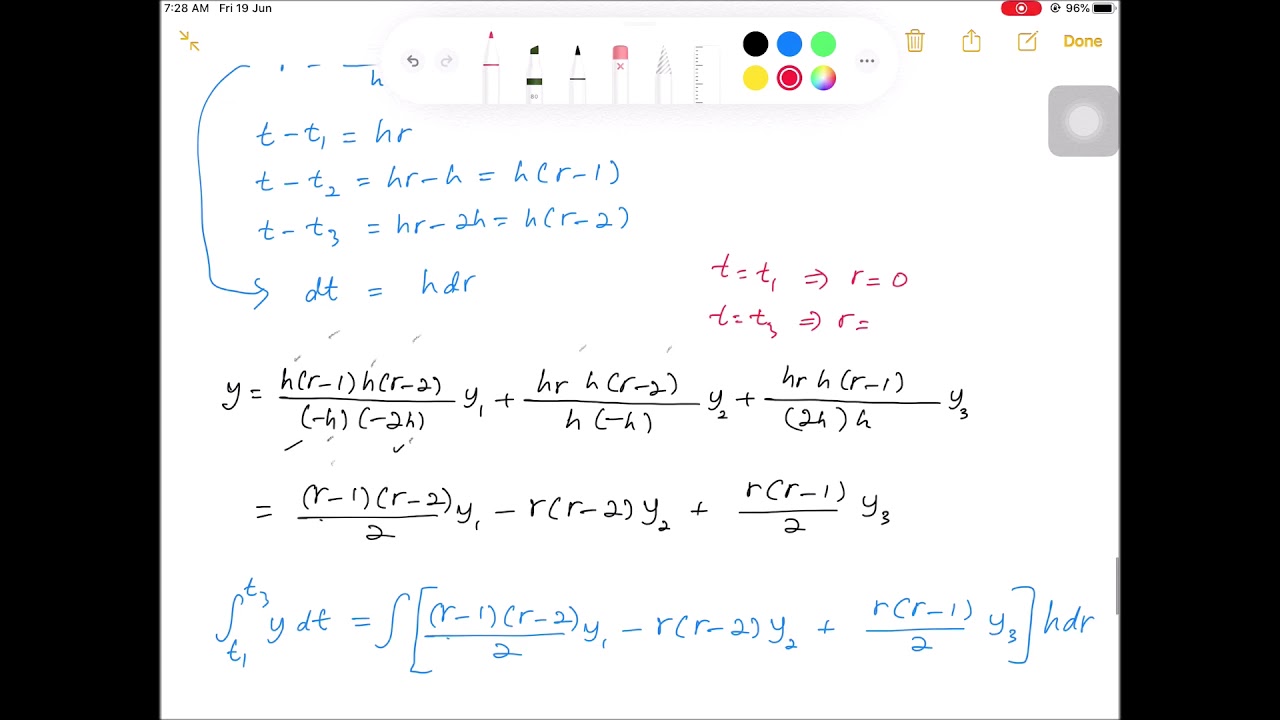 7:28 AM Fri 19 Jun 96%
Done
80
h
t - t₁ = hr
t - t₂ = hr - h = h(r-1)
t - t₃ = hr - 2h = h(r-2)
dt = hdr
t = t₁ ⇒ r = 0
t = t₃ ⇒ r =
y = h(r-1)h(r-2)/(-h)(-2h) y₁ + hr h(r-2)/h(-h) y₂ + hr h(r-1)/(2h)h y₃
= (r-1)(r-2)/2 y₁ - r(r-2)y₂ + r(r-1)/2 y₃
∫_{t₁}^{t₃} y dt = ∫[(r-1)(r-2)/2 y₁ - r(r-2)y₂ + r(r-1)/2 y₃] hdr